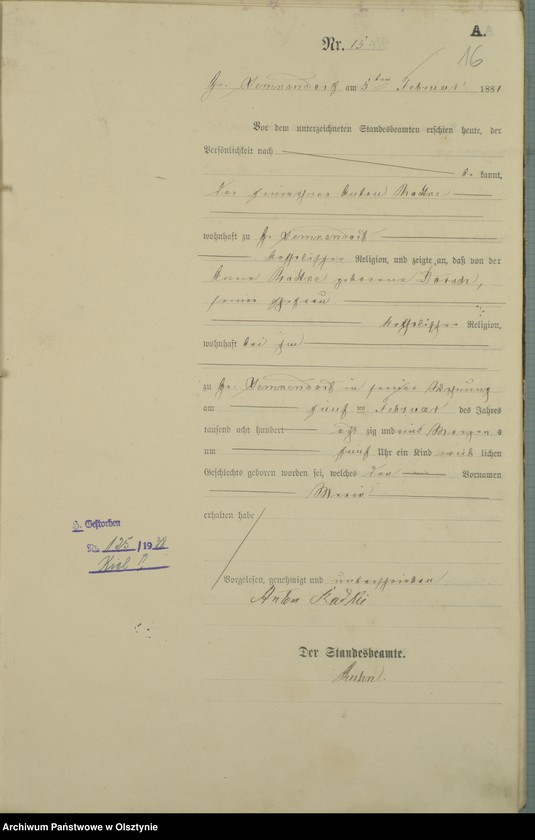 A.
Nr. 15
16
Gr. am 5ten Februar 1881
Vor dem unterzeichneten Standesbeamten erschien heute, der
Persönlichkeit nach
be kannt,
der Anton
wohnhaft zu Gr.
katholischer Religion, und zeigte an, daß von der
Anna geborene
seiner Ehefrau
katholischer Religion,
wohnhaft bei ihm
zu Gr. in seiner Wohnung
am fünften Februar des Jahres
tausend acht hundert acht zig und eins Morgens
um fünf Uhr ein Kind weib lichen
Geschlechts geboren worden sei, welches den Vornamen
Maria
erhalten habe
G. Gestorben
Nr. 125 / 19
Kiel
Vorgelesen, genehmigt und unterschrieben
Anton
Der Standesbeamte.
Archiwum Państwowe w Olsztynie